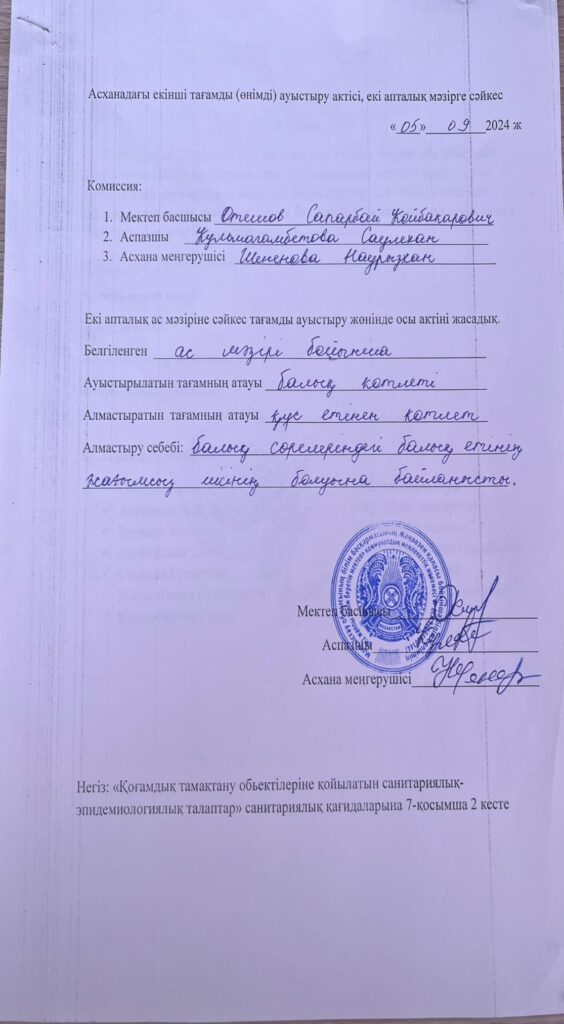 Асханадағы екінші тағамды (өнімді) ауыстыру актісі, екі апталық мәзірге сәйкес
«05» 09 2024 ж
Комиссия:
1. Мектеп басшысы Отешов Сапарбай Койбакарович
2. Аспазшы Кульмагамбетова Саулехан
3. Асхана меңгерушісі Шененова Наурызхан
Екі апталық ас мәзіріне сәйкес тағамды ауыстыру жөнінде осы актіні жасадық.
Белгіленген ас мәзірі бойынша
Ауыстырылатын тағамның атауы балық котлеті
Алмастыратын тағамның атауы құс етінен котлет
Алмастыру себебі: балық сөрелеріндегі балық етінің
жағымсыз иісінің болуына байланысты.
Мектеп басшысы
Аспазшы
Асхана меңгерушісі
Негіз: «Қоғамдық тамақтану обьектілеріне қойылатын санитариялық-
эпидемиологиялық талаптар» санитариялық қағидаларына 7-қосымша 2 кесте